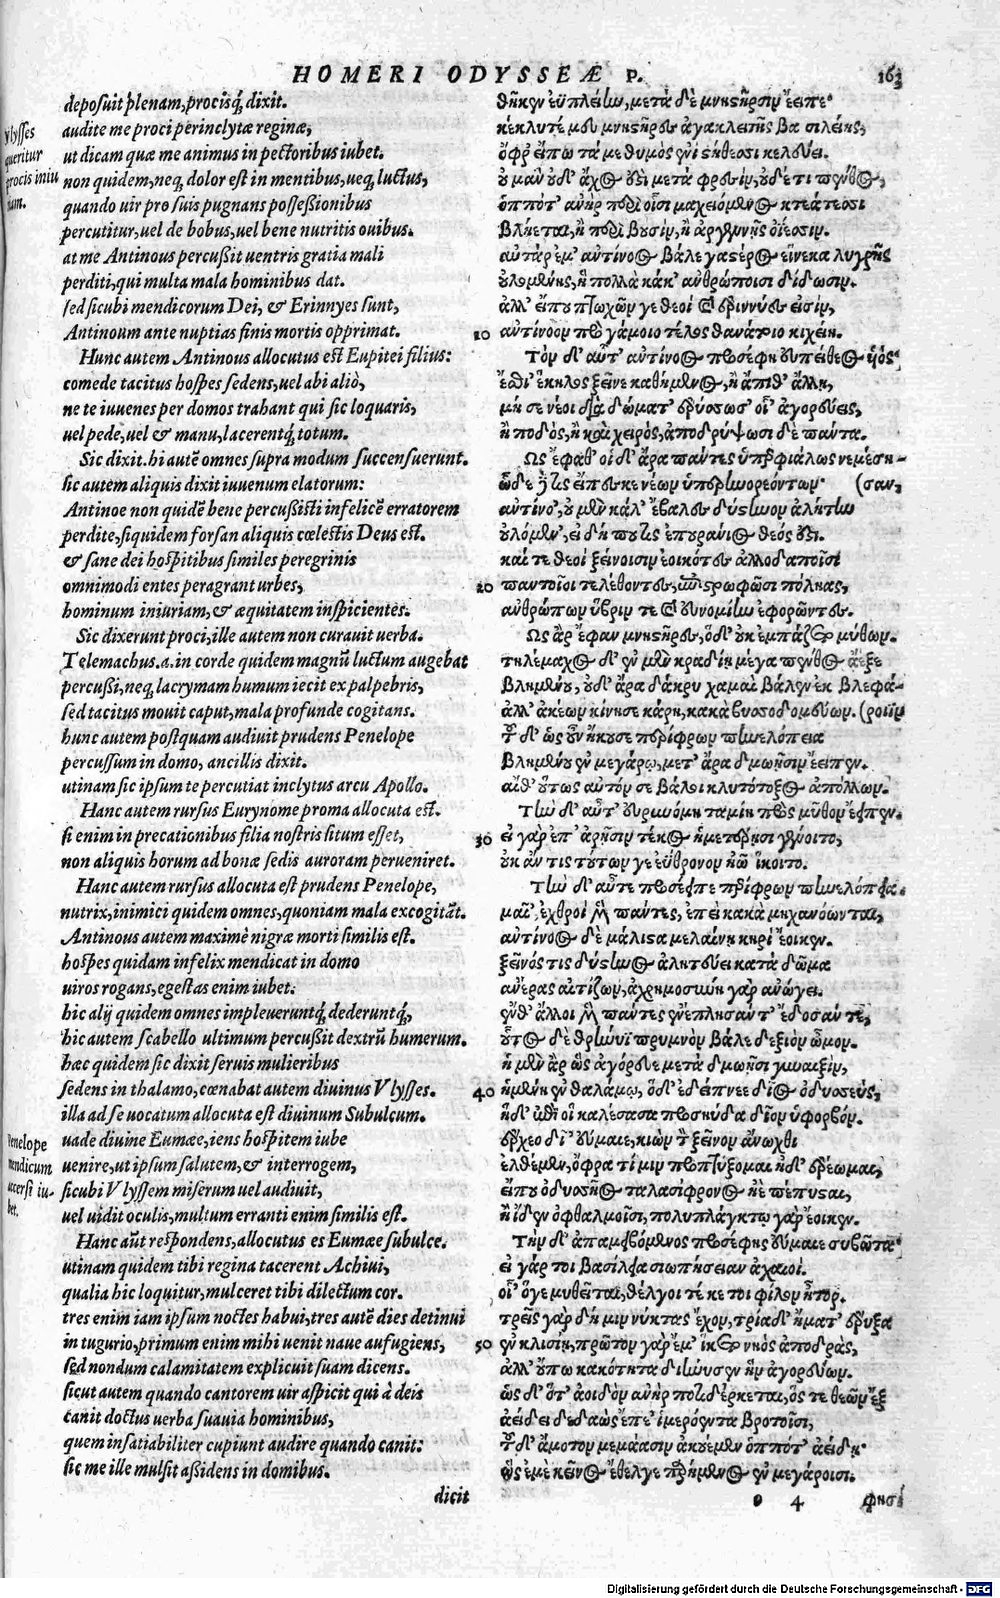 HOMERI ODYSSEÆ P.
163
deposuit plenam, procisq́; dixit.
audite me proci perinclytæ reginæ,
ut dicam quæ me animus in pectoribus iubet.
non quidem, neq; dolor est in mentibus, ueq; luctus,
quando uir pro suis pugnans possessionibus
percutitur, uel de bobus, uel bene nutritis ouibus.
at me Antinous percussit uentris gratia mali
perditi, qui multa mala hominibus dat.
sed sicubi mendicorum Dei, & Erinnyes sunt,
Antinoum ante nuptias finis mortis opprimat.
Hunc autem Antinous allocutus est Eupitei filius:
comede tacitus hospes sedens, uel abi aliò,
ne te iuuenes per domos trahant qui sic loquaris,
uel pede, uel & manu, lacerentq́; totum.
Sic dixit. hi autē omnes supra modum succensuerunt.
sic autem aliquis dixit iuuenum elatorum:
Antinoe non quidē bene percussisti infelicē erratorem
perdite, siquidem forsan aliquis cœlestis Deus est.
& sane dei hospitibus similes peregrinis
omnimodi entes peragrant urbes,
hominum iniuriam, & æquitatem inspicientes.
Sic dixerunt proci, ille autem non curauit uerba.
Telemachus .a. in corde quidem magnū luctum augebat
percussi, neq; lacrymam humum iecit ex palpebris,
sed tacitus mouit caput, mala profunde cogitans.
hunc autem postquam audiuit prudens Penelope
percussum in domo, ancillis dixit.
utinam sic ipsum te percutiat inclytus arcu Apollo.
Hanc autem rursus Eurynome proma allocuta est.
si enim in precationibus filia nostris situm esset,
non aliquis horum ad bonæ sedis auroram perueniret.
Hanc autem rursus allocuta est prudens Penelope,
nutrix, inimici quidem omnes, quoniam mala excogitāt.
Antinous autem maximè nigræ morti similis est.
hospes quidam infelix mendicat in domo
uiros rogans, egestas enim iubet.
hic alij quidem omnes impleueruntq́;, dederuntq́;,
hic autem scabello ultimum percussit dextrū humerum.
hæc quidem sic dixit seruis mulieribus
sedens in thalamo, cœnabat autem diuinus Vlysses.
illa ad se uocatum allocuta est diuinum Subulcum.
uade diuine Eumæe, iens hospitem iube
uenire, ut ipsum salutem, & interrogem,
sicubi Vlyssem miserum uel audiuit,
uel uidit oculis, multum erranti enim similis est.
Hanc aūt respondens, allocutus es Eumæe subulce.
utinam quidem tibi regina tacerent Achiui,
qualia hic loquitur, mulceret tibi dilectum cor.
tres enim iam ipsum noctes habui, tres autē dies detinui
in tugurio, primum enim mihi uenit naue aufugiens,
sed nondum calamitatem explicuit suam dicens.
sicut autem quando cantorem uir aspicit qui à deis
canit doctus uerba suauia hominibus,
quem insatiabiliter cupiunt audire quando canit:
sic me ille mulsit assidens in domibus.
dicit
Vlysses
queritur
procis iniu
riam.
Penelope
mendicum
accersi iu-
bet.
θῆκεν ἐϋπλείων, μετὰ δὲ μνηστῆρσιν ἔειπε·
κέκλυτέ μευ μνηστῆρες ἀγακλειτῆς βασιλείης,
ὄφρ' εἴπω τά με θυμὸς ἐνὶ στήθεσσι κελεύει.
οὐ μὰν οὐδ' ἄχος ἐστὶ μετὰ φρεσὶν, οὐδ' ἔτι πένθος,
ὁππότ' ἀνὴρ περὶ οἷσι μαχειόμενος κτεάτεσσι
βλήεται, ἢ περὶ βουσὶν, ἢ ἀργεννῇς ὀΐεσσιν.
αὐτὰρ ἔμ' ἀντίνοος βάλε γαστέρος εἵνεκα λυγρῆς
οὐλομένης, ἣ πολλὰ κάκ' ἀνθρώποισι δίδωσιν.
ἀλλ' εἴπου πτωχῶν γε θεοὶ καὶ ἐριννύες εἰσὶν,
10 ἀντίνοον πρὸ γάμοιο τέλος θανάτοιο κιχείη.
Τὸν δ' αὖτ' ἀντίνοος προσέφη εὐπείθεος υἱός·
ἔσθι' ἕκηλος ξεῖνε καθήμενος, ἢ ἄπιθ' ἄλλῃ,
μή σε νέοι διὰ δώματ' ἐρύσσωσ' οἷ' ἀγορεύεις,
ἢ ποδὸς, ἢ καὶ χειρὸς, ἀποδρύψωσι δὲ πάντα.
Ως ἔφαθ' οἱ δ' ἄρα πάντες ὑπερφιάλως νεμέση-
ὧδε δέ τις εἴπεσκε νέων ὑπερηνορεόντων· (σαν,
ἀντίνο', οὐ μὲν κάλ' ἔβαλες δύστηνον ἀλήτην
οὐλόμεν', εἰ δή που τις ἐπουράνιος θεός ἐστι.
καί τε θεοὶ ξείνοισιν ἐοικότες ἀλλοδαποῖσι
20 παντοῖοι τελέθοντες, ἐπιστρωφῶσι πόληας,
ἀνθρώπων ὕβριν τε καὶ εὐνομίην ἐφορῶντες.
Ως ἄρ' ἔφαν μνηστῆρες, ὁ δ' οὐκ ἐμπάζετο μύθων.
τηλέμαχος δ' ἐν μὲν κραδίῃ μέγα πένθος ἄεξε
βλημένου, οὐδ' ἄρα δάκρυ χαμαὶ βάλεν ἐκ βλεφά-
ἀλλ' ἀκέων κίνησε κάρη, κακὰ βυσσοδομεύων. (ροιϊν
τοῦ δ' ὡς οὖν ἤκουσε περίφρων πηνελόπεια
βλημένου ἐν μεγάρῳ, μετ' ἄρα δμωῇσιν ἔειπεν.
αἴθ' οὕτως αὐτόν σε βάλοι κλυτότοξος ἀπόλλων.
Τὴν δ' αὖτ' εὐρυνόμη ταμίη πρὸς μῦθον ἔειπεν.
30 εἰ γὰρ ἐπ' ἀρῇσιν τέκος ἡμετέρῃσι γένοιτο,
οὐκ ἄν τις τούτων γε εὔθρονον ἠῶ ἵκοιτο.
Τὴν δ' αὖτε προσέειπε περίφρων πηνελόπεια.
μαῖ', ἐχθροὶ μὲν πάντες, ἐπεὶ κακὰ μηχανόωνται,
ἀντίνοος δὲ μάλιστα μελαίνῃ κηρὶ ἔοικεν.
ξεῖνός τις δύστηνος ἀλητεύει κατὰ δῶμα
ἀνέρας αἰτίζων, ἀχρημοσύνη γὰρ ἀνώγει.
ἔνθ' ἄλλοι μὲν πάντες ἐνέπλησάν τ' ἔδοσάν τε,
οὗτος δὲ θρήνυϊ πρυμνὸν βάλε δεξιὸν ὦμον.
ἡ μὲν ἄρ' ὣς ἀγόρευε μετὰ δμωῇσι γυναιξὶν,
40 ἡμένη ἐν θαλάμῳ, ὁ δ' ἐδείπνεε δῖος ὀδυσσεύς,
ἡ δ' ἐπὶ οἷ καλέσασα προσηύδα δῖον ὑφορβόν.
ἔρχεο δῖ' εὔμαιε, κιὼν τὸν ξεῖνον ἄνωχθι
ἐλθέμεν, ὄφρα τί μιν προπτύξομαι ἠδ' ἐρέωμαι,
εἴπου ὀδυσσῆος ταλασίφρονος ἠὲ πέπυσται,
ἢ ἴδεν ὀφθαλμοῖσι, πολυπλάγκτῳ γὰρ ἔοικεν.
Τὴν δ' ἀπαμειβόμενος προσέφης εὔμαιε συβῶτα·
εἰ γάρ τοι βασίλεια σιωπήσειαν ἀχαιοί.
οἷ' ὅγε μυθεῖται, θέλγοι τέ κε τοι φίλον ἦτορ.
τρεῖς γὰρ δή μιν νύκτας ἔχον, τρία δ' ἤματ' ἔρυξα
50 ἐν κλισίῃ, πρῶτον γὰρ ἔμ' ἵκετο νηὸς ἀποδρὰς,
ἀλλ' οὔπω κακότητα διήνυσεν ἣν ἀγορεύων.
ὡς δ' ὅτ' ἀοιδὸν ἀνὴρ ποτιδέρκεται, ὅς τε θεῶν ἒξ
ἀείδει δεδαὼς ἔπε' ἱμερόεντα βροτοῖσι,
τοῦ δ' ἄμοτον μεμάασιν ἀκουέμεν ὁππότ' ἀείδῃ·
ὣς ἐμὲ κεῖνος ἔθελγε παρήμενος ἐν μεγάροισι.
υ 4 φησὶ
Digitalisierung gefördert durch die Deutsche Forschungsgemeinschaft - DFG